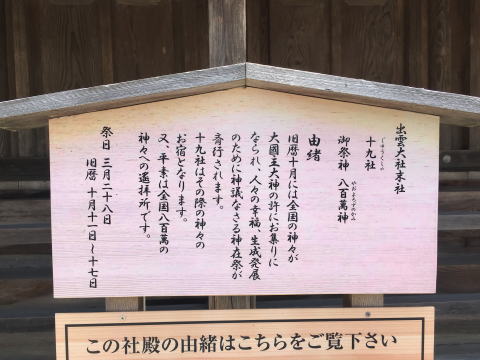 出雲大社末社
十九社
じゅうくしゃ
御祭神 八百萬神
やおよろずのかみ
由緒
旧暦十月には全国の神々が
大國主大神の許にお集りに
なられ、人々の幸福、生成発展
のために神議なさる神在祭が
斎行されます。
十九社はその際の神々の
お宿となります。
又、平素は全国八百萬の
神々への遙拝所です。
祭日 三月二十八日
旧暦 十月十一日〜十七日
この社殿の由緒はこちらをご覧下さい